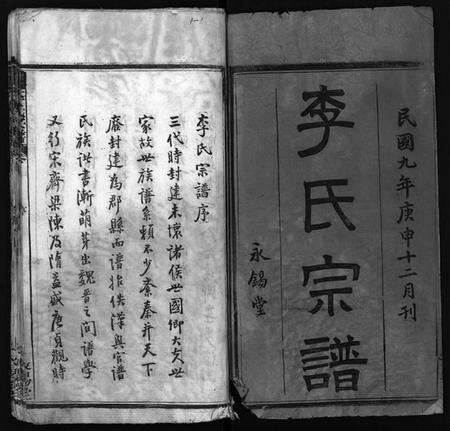 民國九年庚申十二月刊
李氏宗譜
永錫堂
李氏宗譜序
三代時封建未壞諸侯世國卿大夫世
家故世族譜系賴不少紊秦并天下
廢封建為郡縣而譜始佚漢興官譜
民族諸書漸萌芽出魏晉之間譜學
又行宋齊梁陳及隋益盛唐貞觀時